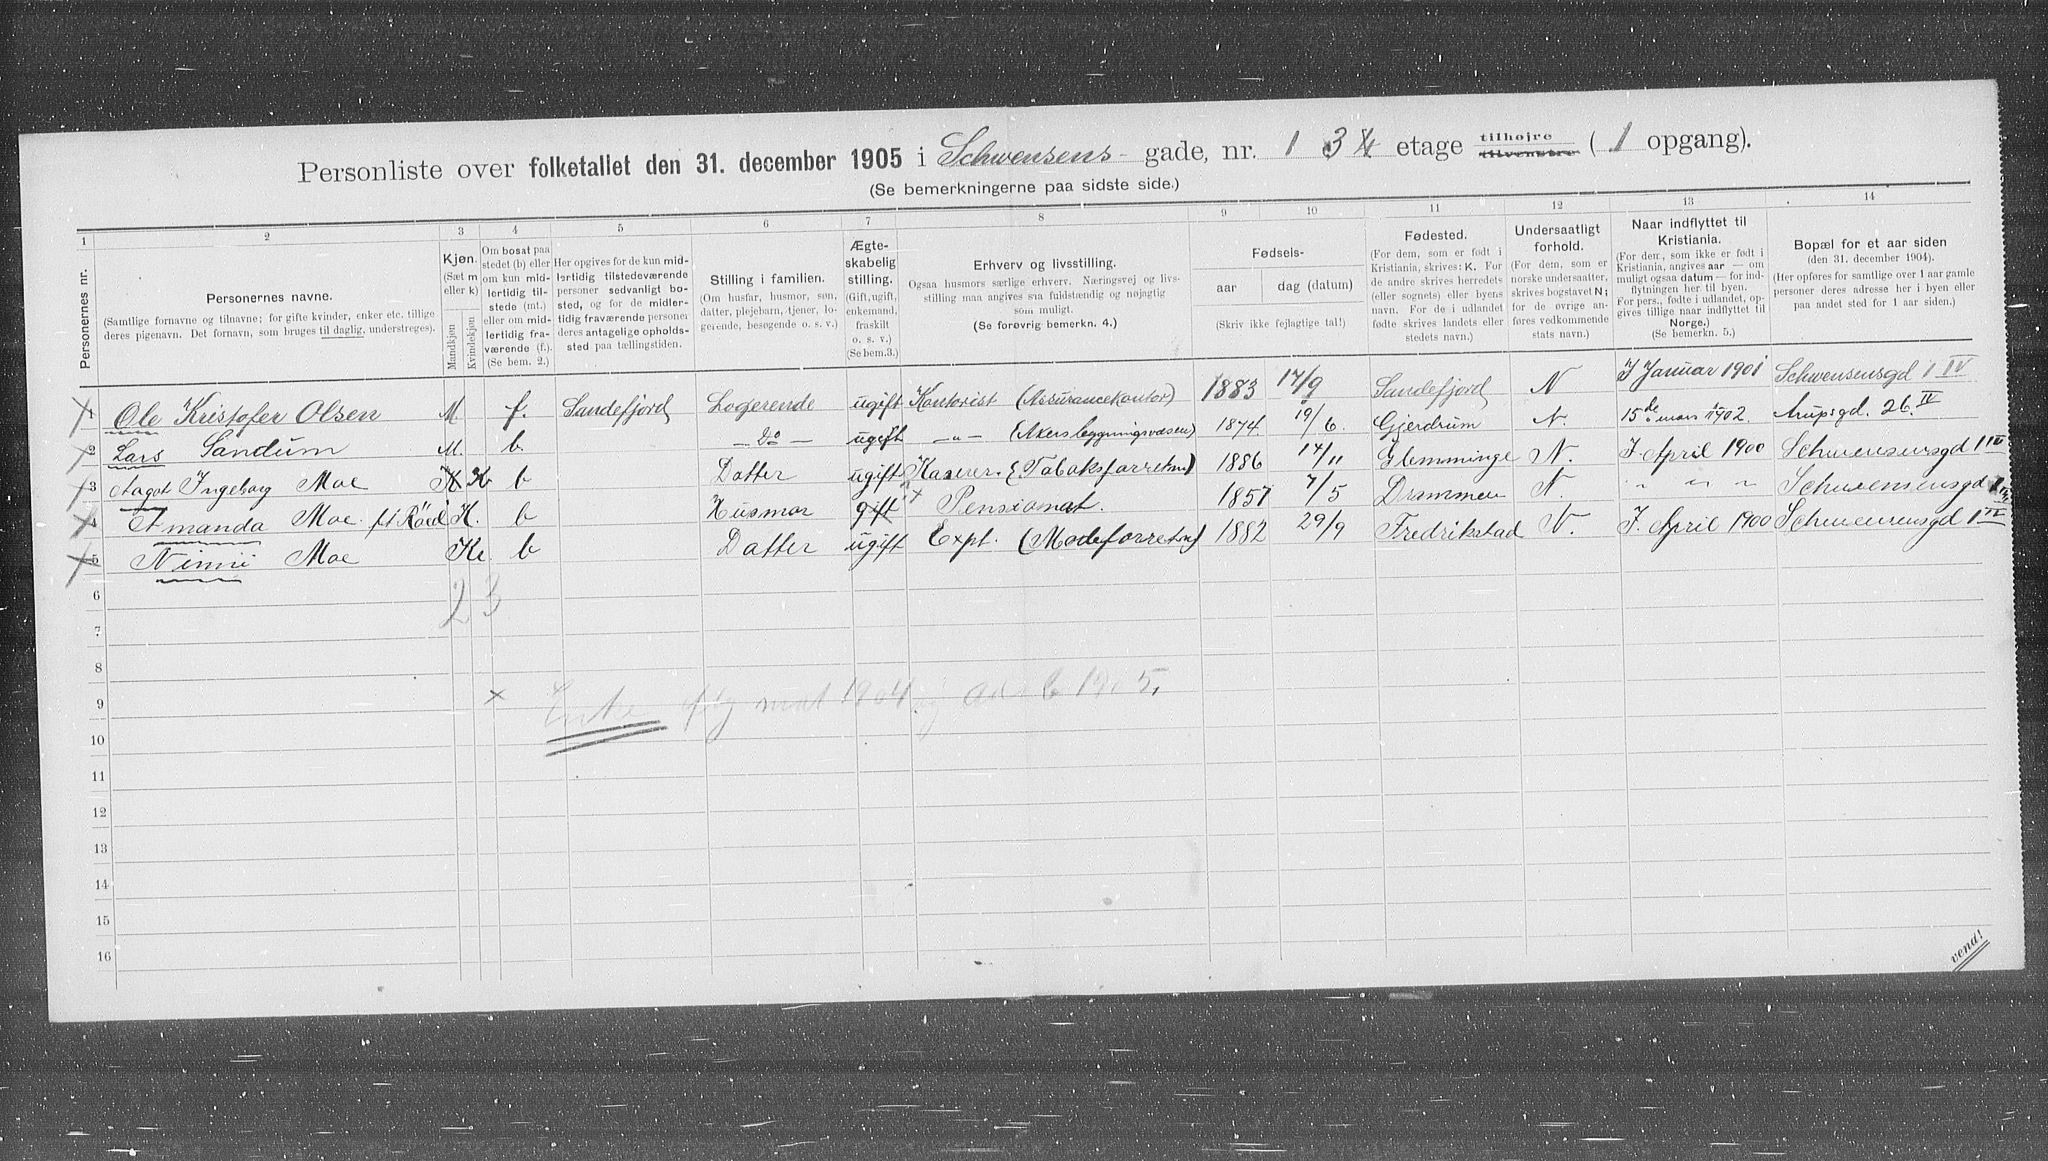 Personliste over folketallet den 31. december 1905 i Schwensens- gade, nr. 1 3 4 etage tilhøjre tilvenstre (1 opgang).
(Se bemerkningerne paa sidste side.)
1 2 3 4 5 6 7 8 9 10 11 12 13 14
Personernes nr.
Personernes navne.
(Samtlige fornavne og tilnavne; for gifte kvinder, enker etc. tillige
deres pigenavn. Det fornavn, som bruges til daglig, understreges).
Kjøn.
(Sæt m
eller k)
Mandkjøn
Kvindekjøn
Om bosat paa
stedet (b) eller
om kun mid-
lertidig til-
stede (mt.)
eller om mid-
lertidig fra-
værende (f.).
(Se bem. 2.)
Her opgives for de kun mid-
lertidig tilstedeværende
personer sedvanligt bo-
sted, og for de midler-
tidig fraværende personer
deres antagelige opholds-
sted paa tællingstiden.
Stilling i familien.
(Om husfar, husmor, søn,
datter, plejebarn, tjener, lo-
gerende, besøgende o. s. v.)
Ægte-
skabelig
stilling.
(Gift, ugift,
enkemand,
fraskilt
o. s. v.)
(Se bem.3.)
Erhverv og livsstilling.
Ogsaa husmors særlige erhverv. Næringsvej og livs-
stilling maa angives saa fuldstændig og nøjagtig
som muligt.
(Se forøvrig bemerkn. 4.)
Fødsels-
aar
dag (datum)
(Skriv ikke fejlagtige tal!)
Fødested.
(For dem, som er født i
Kristiania, skrives: K. For
de andre skrives herredets
(eller sognets) eller byens
navn. For de i udlandet
fødte skrives landets eller
stedets navn.)
Undersaatligt
forhold.
(For dem, som er
norske undersaatter,
skrives bogstavet N;
for de øvrige an-
føres vedkommende
stats navn.)
Naar indflyttet til
Kristiania.
(For dem, som ikke er født i
Kristiania, angives aar — om
muligt ogsaa datum — for ind-
flytningen her til byen.
For pers., fødte i udlandet, op-
gives tillige naar indflyttet til
Norge.)
(Se bemerkn. 5.)
Bopæl for et aar siden
(den 31. december 1904).
(Her opføres for samtlige over 1 aar gamle
personer deres adresse her i byen eller
paa andet sted for 1 aar siden.)
1 Ole Kristofer Olsen M f. Sandefjord Logerende ugift Kontorist (Assurancekontor) 1883 14/9 Sandefjord N I Januar 1901 Schwensensgd 1 IV
2 Lars Sandum M. b — Do — ugift — „ — (Akers byggningsvæsen) 1874 19/6. Gjerdrum N. 15de mars 1902. Arupsgd. 26. IV
3 Aagot Ingeborg Moe K K b Datter ugift Kaserer. (Tabaksforretn) 1886 14/11 Glemminge N. I April 1900 Schwensensgd 1 III
4 Amanda Moe K. b Husmor gift × Pensionat. 1857 7/5 Drammen N. „ „ „ Schwensensgd 1
5 Ninni Moe K b Datter ugift Expt. (Modeforretn) 1882 29/9 Fredrikstad N. I. April 1900 Schwensensgd 1 IV
6 2 3
7
8
9 × Enke
10
11
12
13
14
15
16
vend!